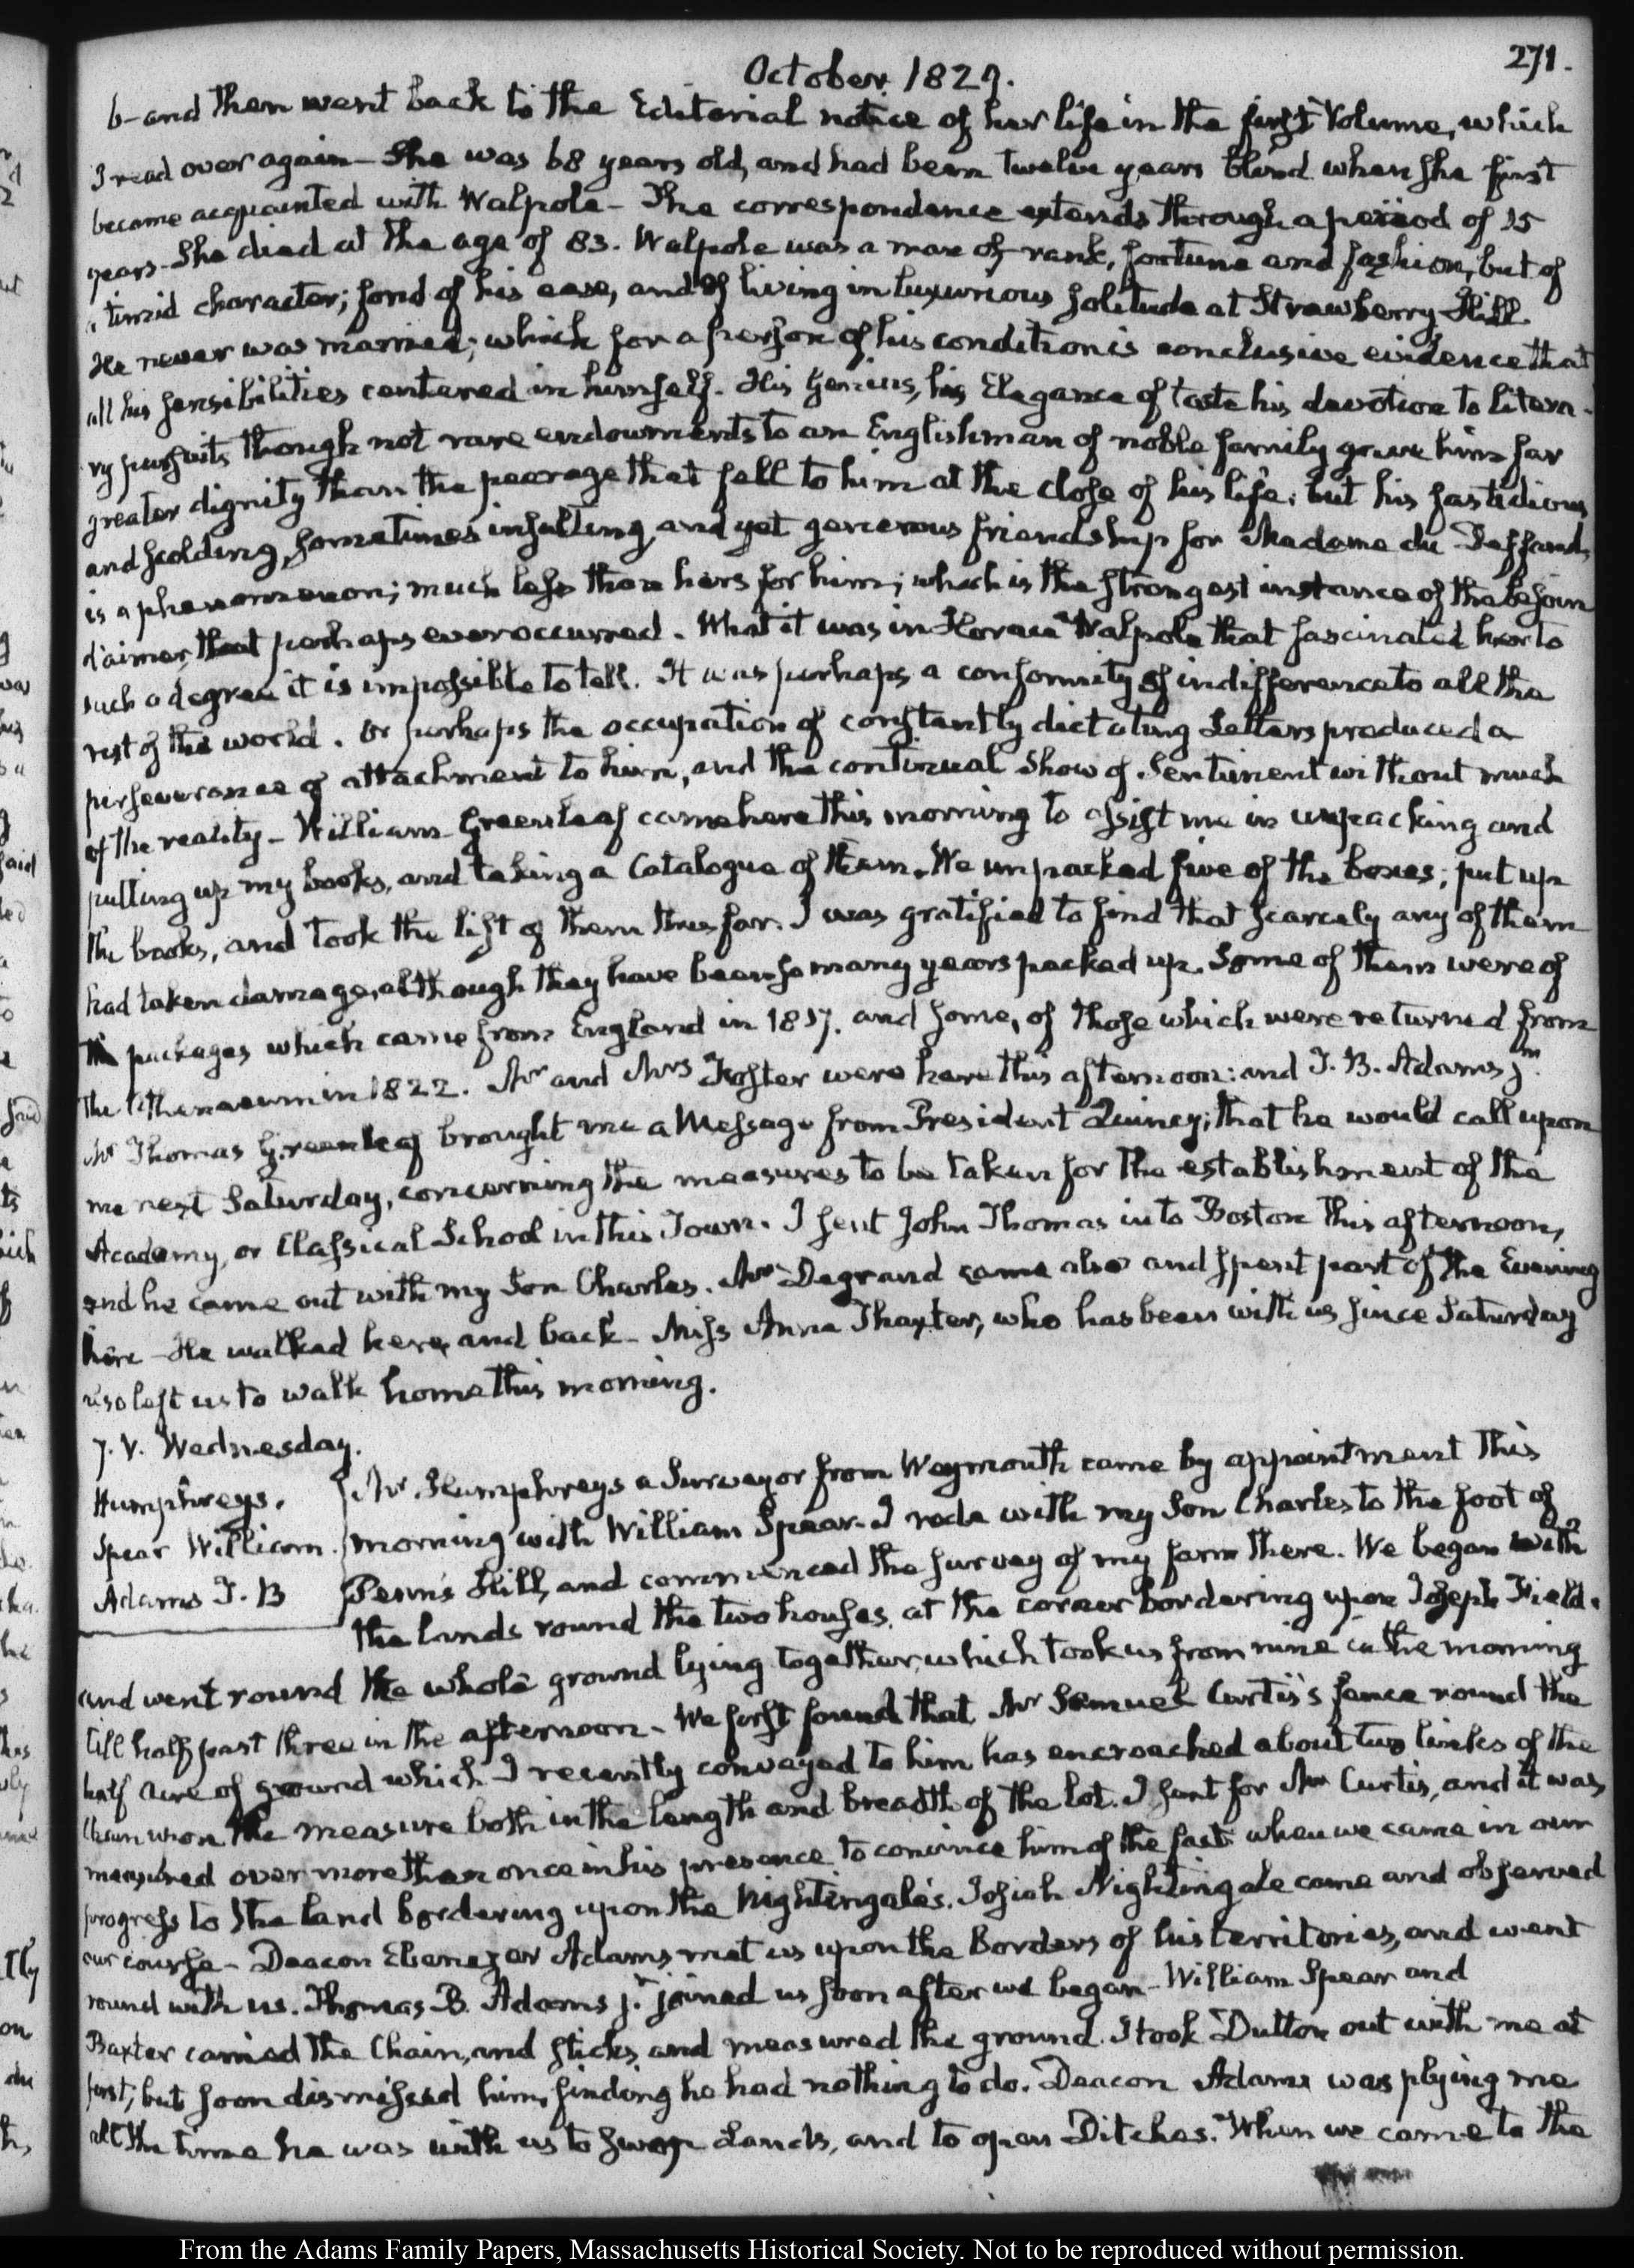 271.
October 1827.
6– and then went back to the Editorial notice of her life in the first Volume, which
I read over again – She was 68 years old, and had been twelve years blind when she first
became acquainted with Walpole – The correspondence extends through a period of 15
years – She died at the age of 83. Walpole was a man of rank, fortune and fashion, but of
a timid character; fond of his ease, and of living in luxurious solitude at Strawberry Hill.
He never was married; which for a person of his condition is conclusive evidence that
all his sensibilities centered in himself. His Genius, his Elegance of taste his devotion to litera-
ry pursuits though not rare endowments to an Englishman of noble family gave him far
greater dignity than the peerage that fell to him at the close of his life: but his fastidious
and scolding, sometimes insulting, and yet generous friendship for Madame du Deffand,
is a phenomenon; much less than hers for him; which is the strongest instance of the besoin
d'aimer, that perhaps ever occurred. What it was in Horace Walpole that fascinated her to
such a degree it is impossible to tell. It was perhaps a conformity of indifference to all the
rest of the world. Or perhaps the occupation of constantly dictating Letters produced a
perseverance of attachment to him, and the continual show of Sentiment without much
of the reality – William Greenleaf came here this morning to assist me in unpacking and
putting up my books, and taking a Catalogue of them. We unpacked five of the boxes; put up
the books, and took the list of them thus far. I was gratified to find that scarcely any of them
had taken damage, although they have been so many years packed up. Some of them were of
the packages which came from England in 1817. and some, of those which were returned from
the Athenaeum in 1822. Mr and Mrs Foster were here this afternoon: and T. B. Adams jr.
Mr Thomas Greenleaf brought me a Message from President Quincy; that he would call upon
me next Saturday, concerning the measures to be taken for the establishment of the
Academy, or Classical School in this Town. I sent John Thomas in to Boston this afternoon,
and he came out with my Son Charles. Mr Degrand came also and spent part of the Evening
here – He walked here, and back – Miss Anna Thaxter, who has been with us since Saturday
also left us to walk home this morning.
7. V. Wednesday.
Humphreys.
Spear William.
Adams T. B
Mr Humphreys a Surveyor from Weymouth came by appointment this
morning with William Spear – I rode with my Son Charles to the foot of
Penn's Hill, and commenced the survey of my farm there. We began with
the lands round the two houses, at the corner bordering upon Joseph Field.
and went round the whole ground lying together, which took us from nine in the morning
till half past three in the afternoon – We first found that Mr Samuel Curtis's fence round the
half acre of ground which I recently conveyed to him has encroached about two links of the
chain upon the measure both in the length and breadth of the lot. I sent for Mr Curtis, and it was
measured over more than once in his presence to convince him of the fact. when we came in our
progress to the land bordering upon the Nightingale's. Josiah Nightingale came and observed
our course – Deacon Ebenezer Adams met us upon the Borders of his territories, and went
round with us. Thomas B. Adams jr. joined us soon after we began – William Spear and
Baxter carried the Chain, and sticks and measured the ground. I took Dutton out with me at
first; but soon dismissed him, finding he had nothing to do. Deacon Adams was plying me
all the time he was with us to swap Lands, and to open Ditches. When we came to the
From the Adams Family Papers, Massachusetts Historical Society. Not to be reproduced without permission.